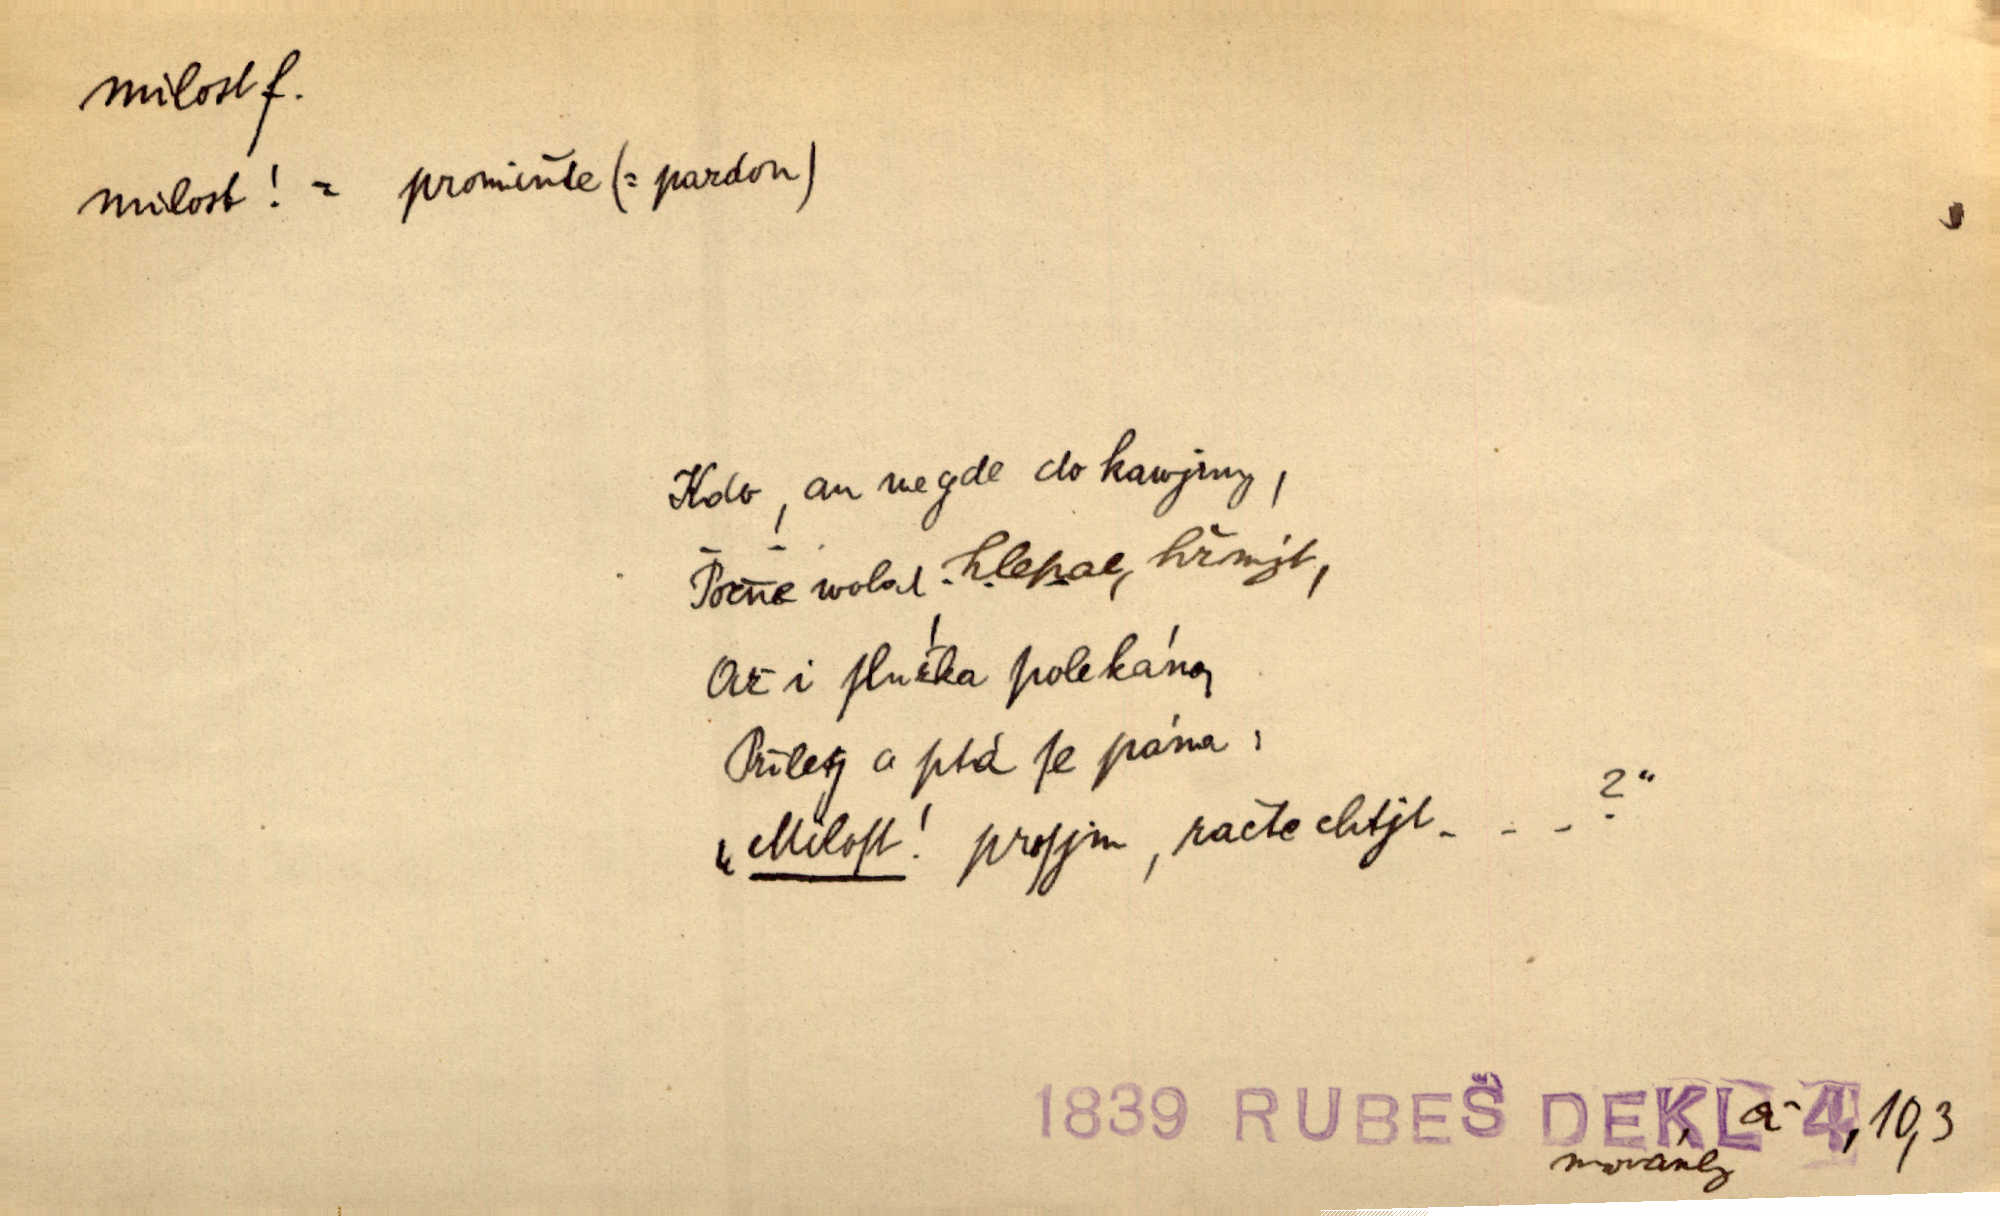 milost f.
milost! = promiňte (= pardon)
Kdo, an wegde do kawjrny,
Počne wolat, klepat, hřmjt,
Až i slaužka polekána
Přiletj a ptá se pána:
„Milost! prosjm, račte chtjt - - - ?“
1839 RUBEŠ DEKLa- 4, 10, 3
movánky